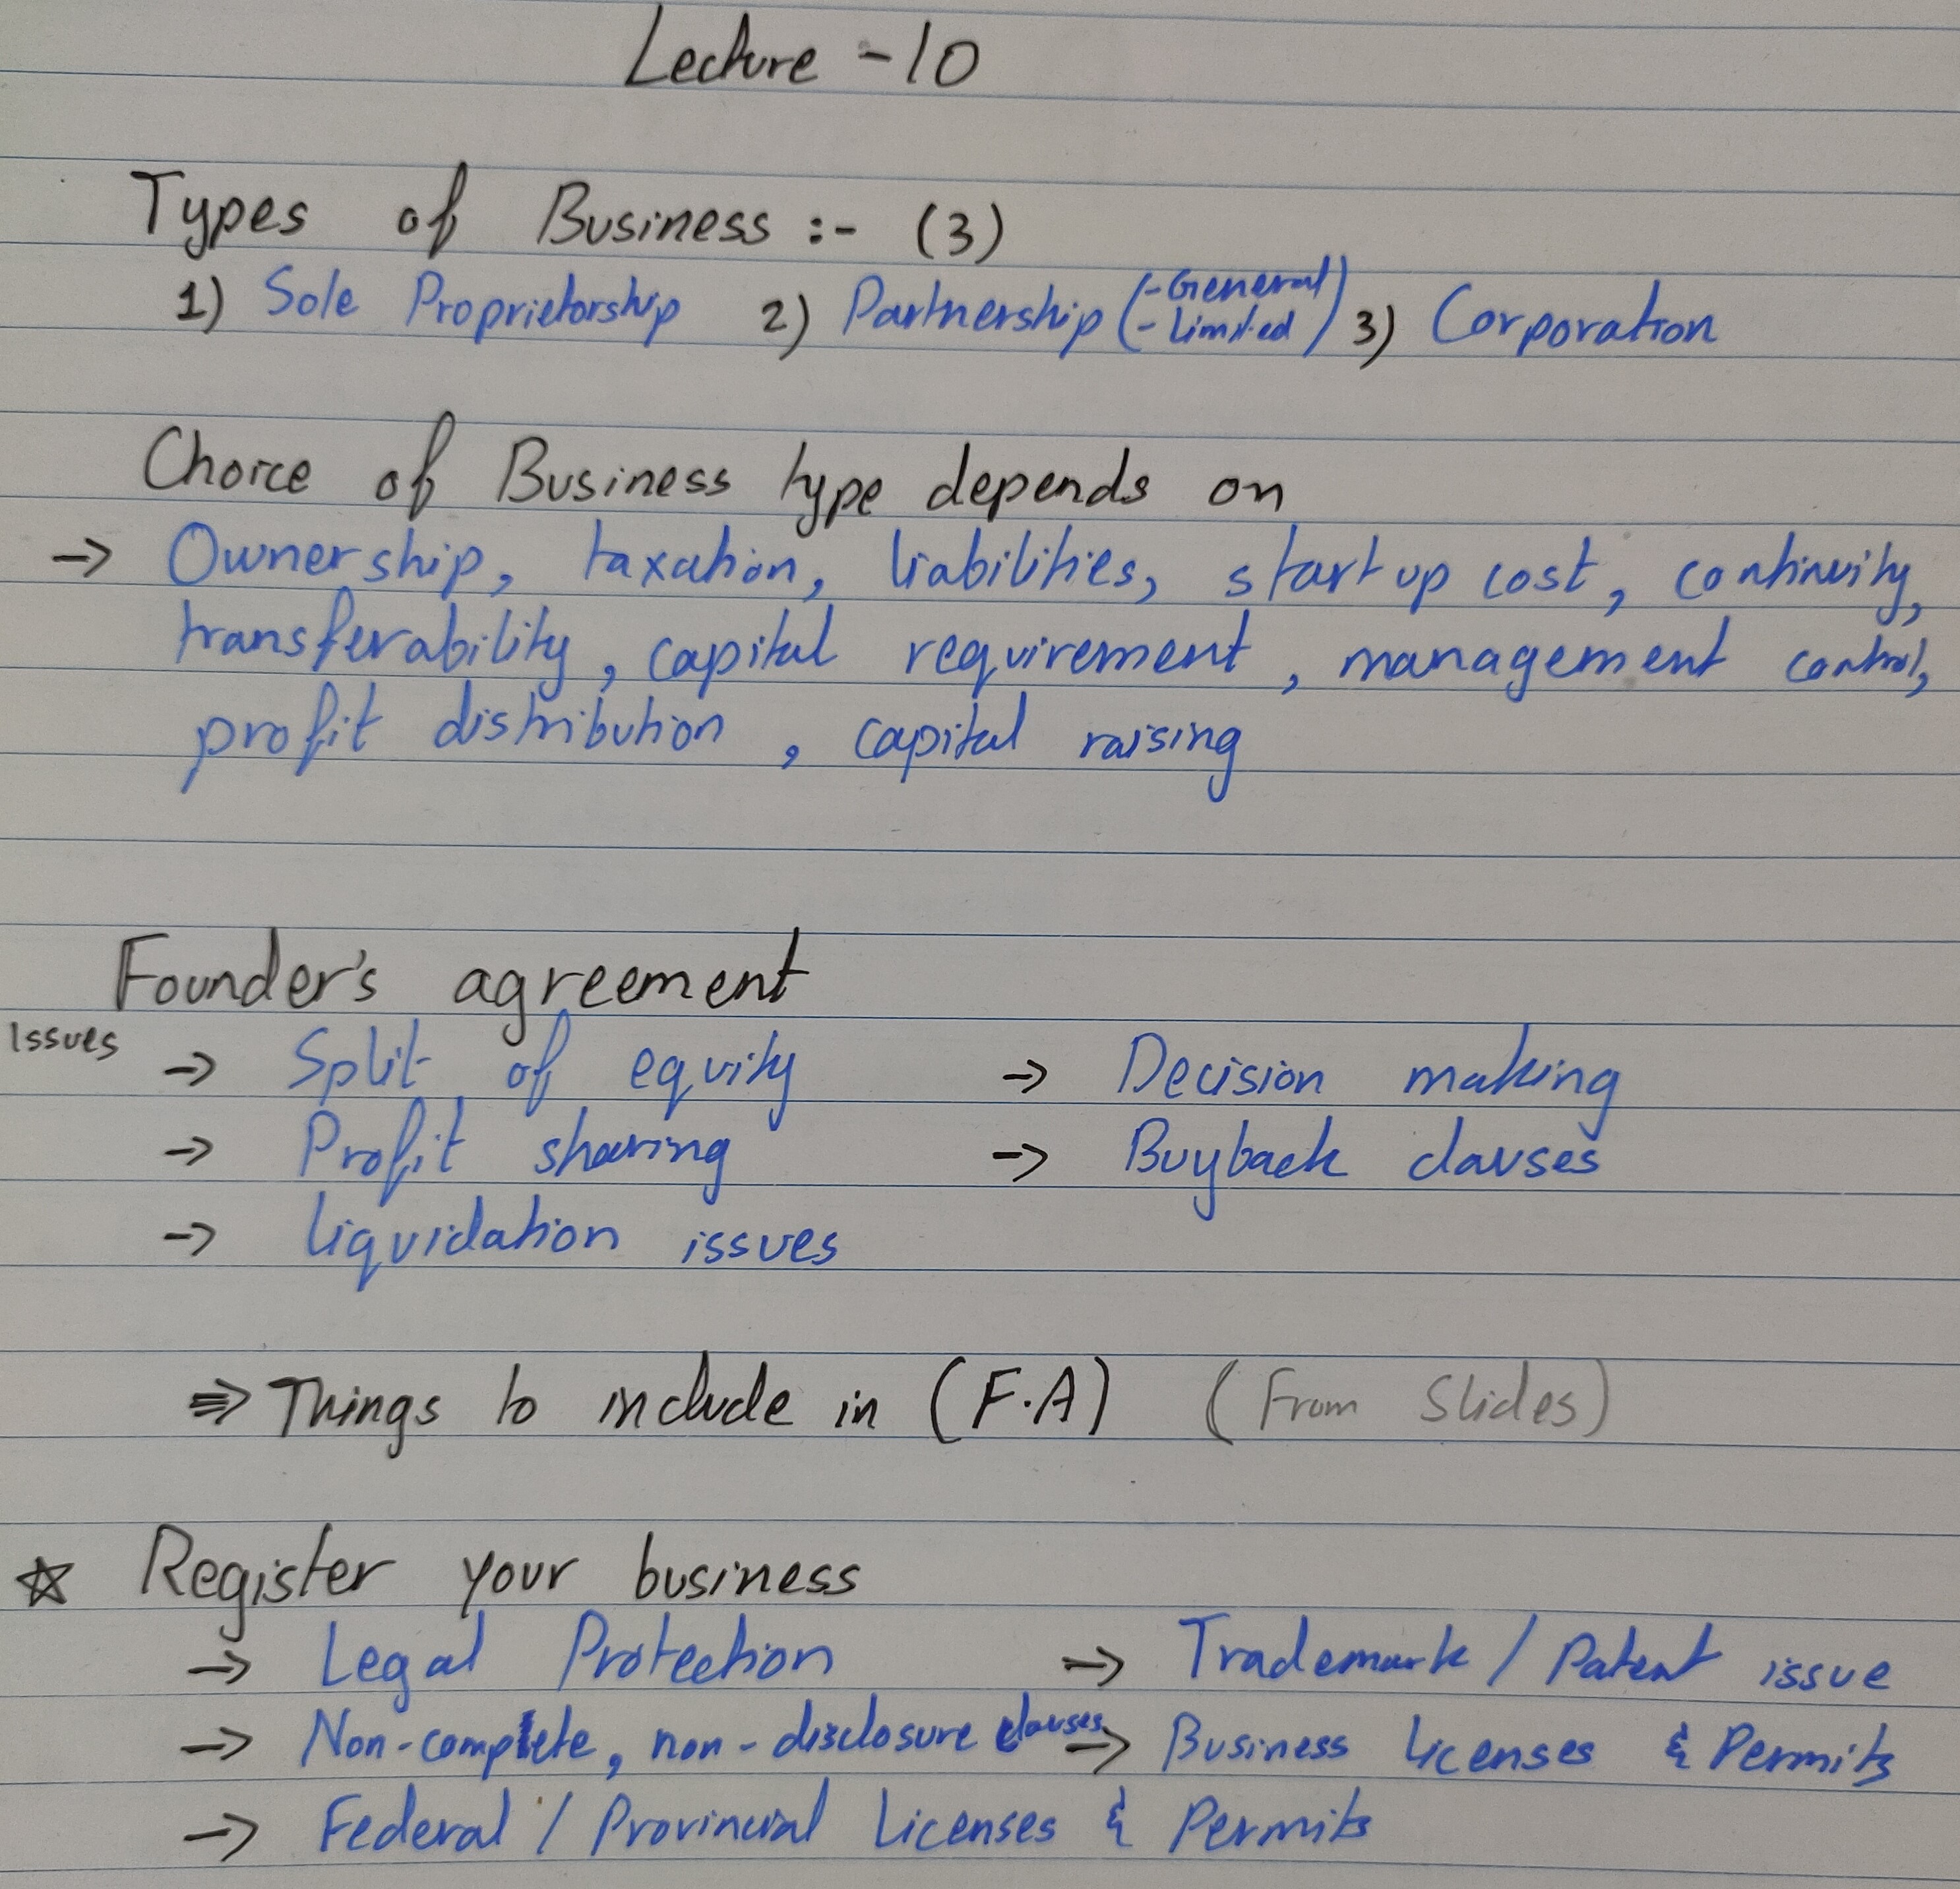 Lecture - 10
Types of Business :- (3)
1) Sole Proprietorship 2) Partnership (- General - Limited) 3) Corporation
Choice of Business type depends on
→ Ownership, taxation, liabilities, startup cost, continuity,
transferability, capital requirement, management control,
profit distribution, capital raising
Founder's agreement
Issues → Split of equity → Decision making
→ Profit sharing → Buyback clauses
→ liquidation issues
⇒ Things to include in (F.A) (From Slides)
☆ Register your business
→ Legal Protection → Trademark / Patent issue
→ Non-complete, non-disclosure clauses → Business Licenses & Permits
→ Federal / Provincial Licenses & Permits